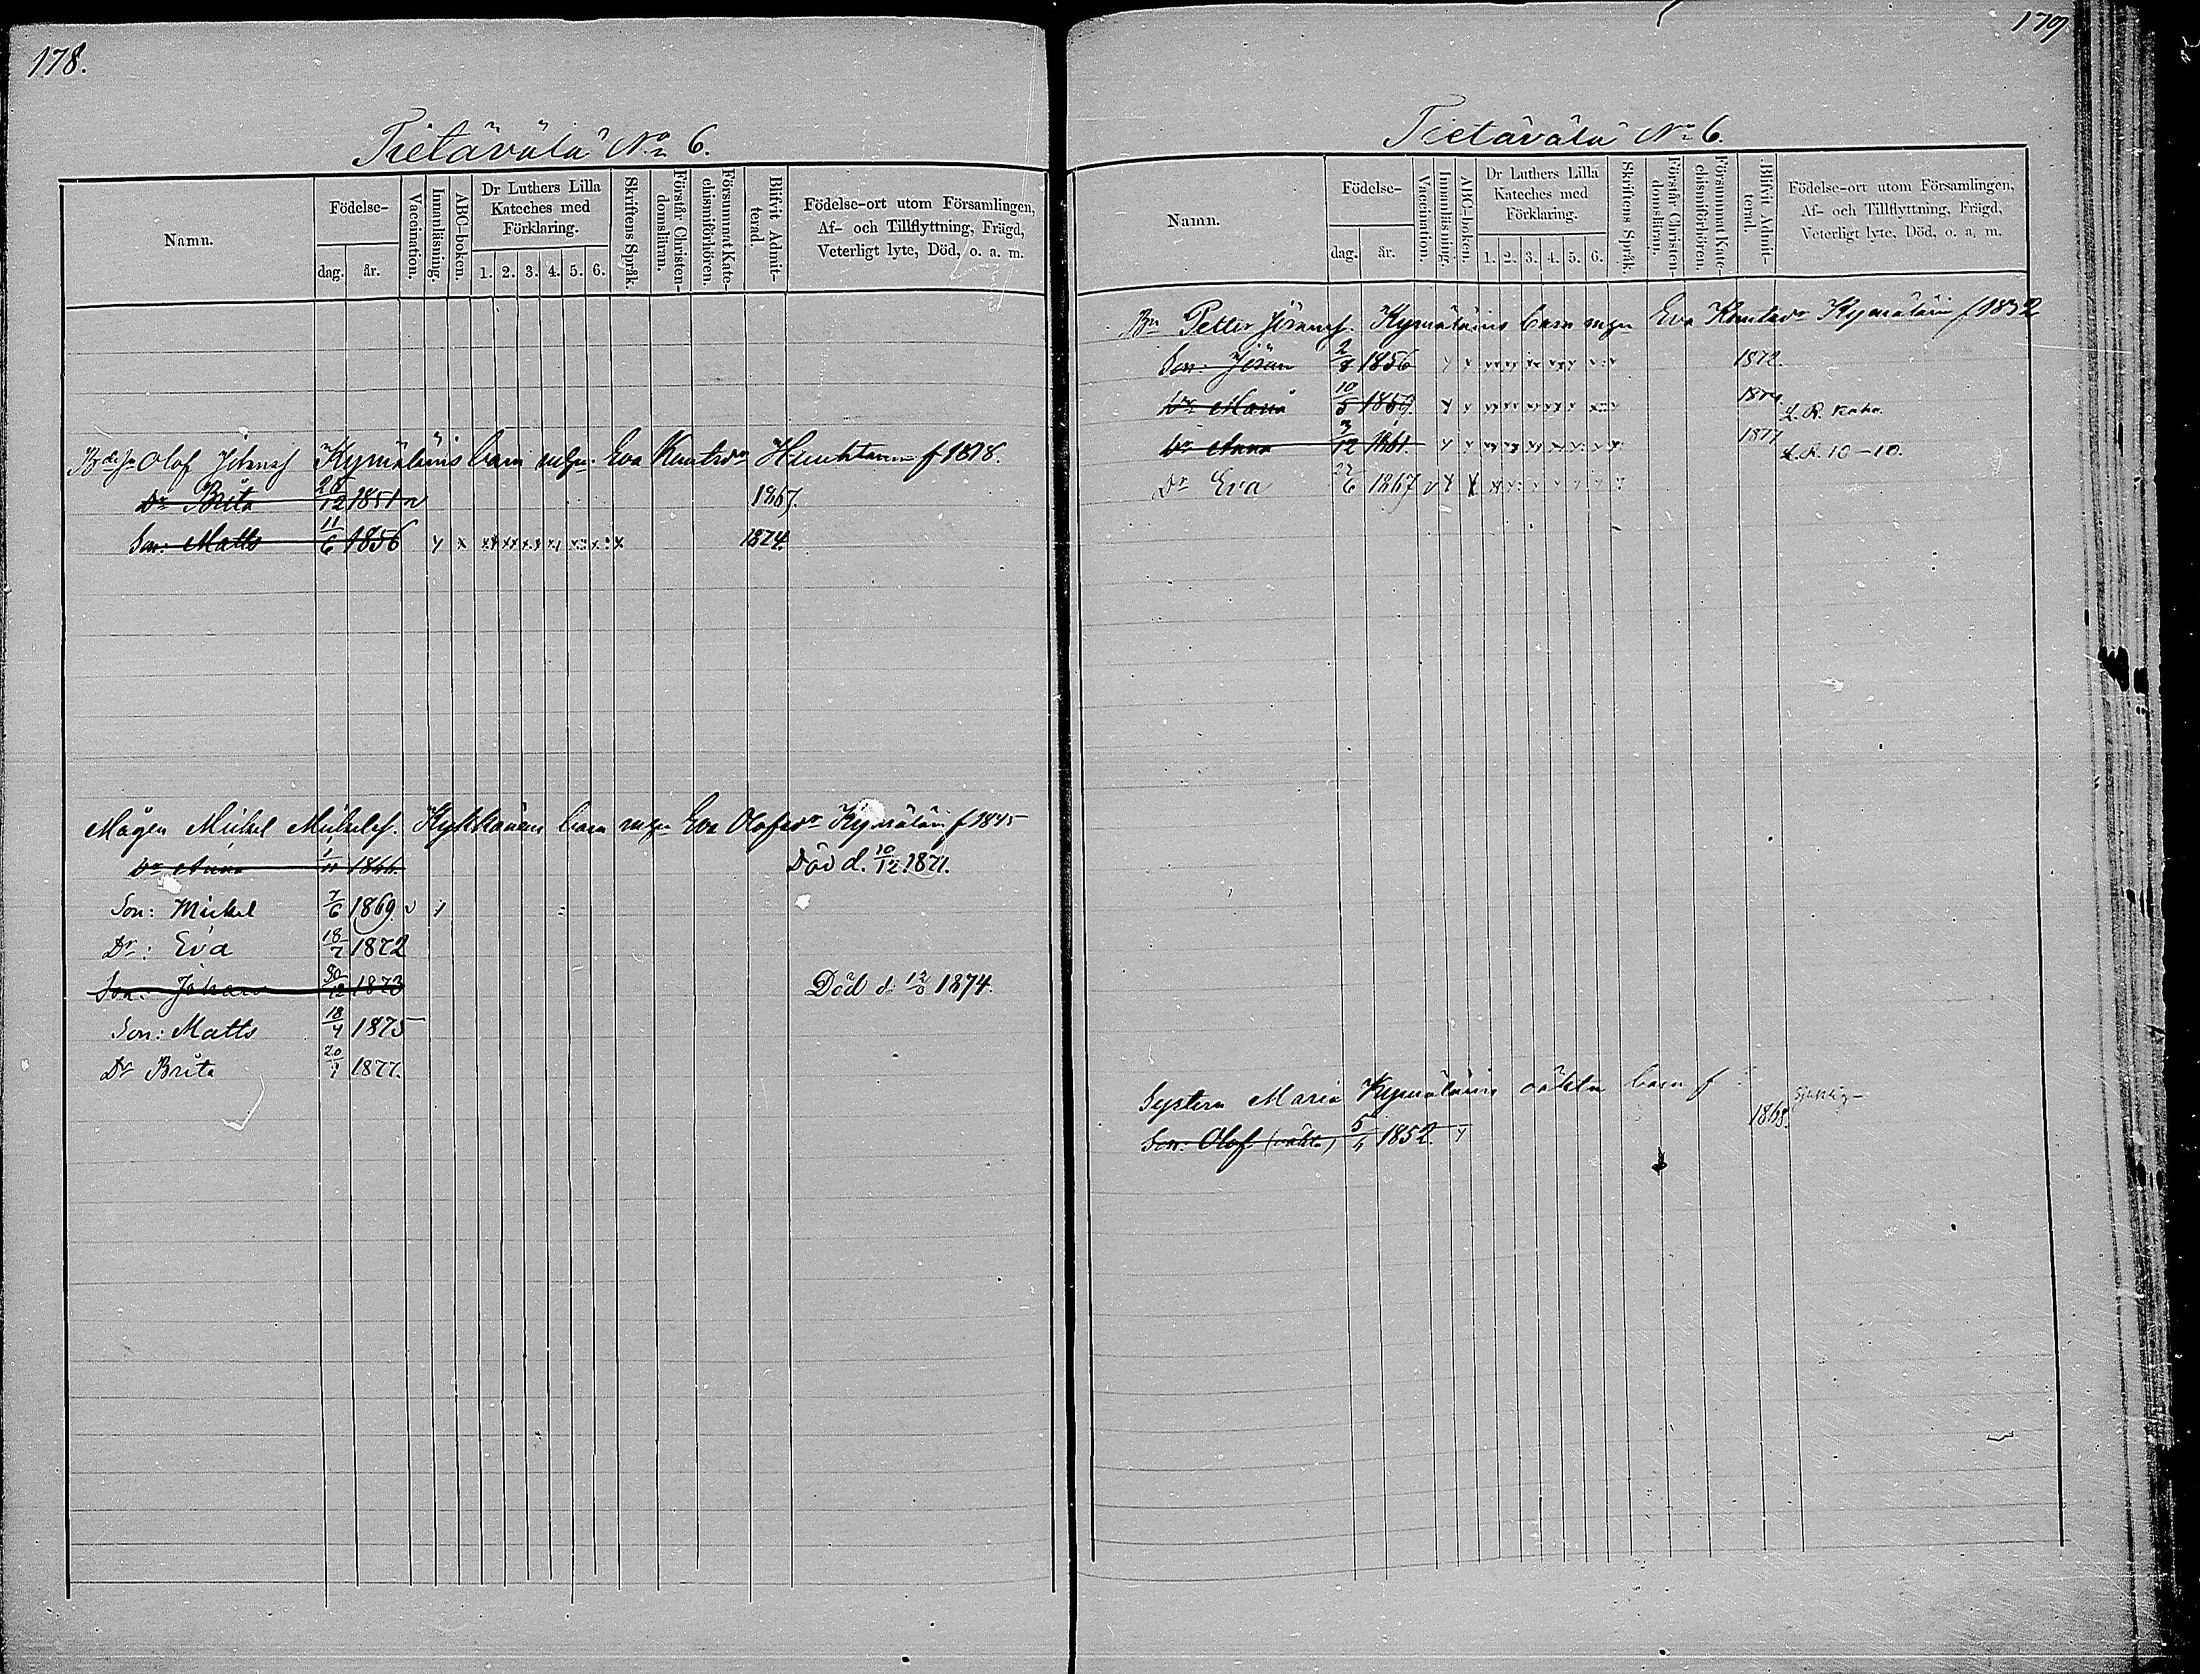 178.
Tietävälä No 6.
Namn.
Födelse-
dag. år.
Vaccination.
Innanläsning.
ABC-boken.
Dr Luthers Lilla Kateches med Förklaring.
1. 2. 3. 4. 5. 6.
Skriftens Språk.
Förstår Christendomsläran.
Försummat Katechismiförhören.
Blifvit Admitterad.
Födelse-ort utom Församlingen, Af- och Tillflyttning, Frägd, Veterligt lyte, Död, o. a. m.
Olof Kymäläins barn Eva f 1818.
Dr Brita 28/12 1851 v 1867.
Son: Matts 11/6 1856 1874.
Mågen Mickel Mickelss. barn Eva Olofsdr Kymäläin f 1845
Dr Anna Död d. 10/12 1871.
Son: Mickel 7/6 1869 v
Dr: Eva 18/7 1872
Son: Johan 30/12 1873 Död d. 1874.
Son: Matts 18/4 1875
Dr Brita 20/1 1877.
179
Tietävälä No 6.
Namn.
Födelse-
dag. år.
Vaccination.
Innanläsning.
ABC-boken.
Dr Luthers Lilla Kateches med Förklaring.
1. 2. 3. 4. 5. 6.
Skriftens Språk.
Förstår Christendomsläran.
Försummat Katechismiförhören.
Blifvit Admitterad.
Födelse-ort utom Församlingen, Af- och Tillflyttning, Frägd, Veterligt lyte, Död, o. a. m.
Br Petter Kymäläins barn Eva Kymäläin f 1832
Son: Jöran 2/8 1856 1872.
Dr Maria 10/5 1859 L. R.
Dr Anna 3/12 1861. 1877 L. R. 10-10.
Dr Eva 22/6 1867 v
Systern Maria Kymäläins oäkta barn f
Son: Olof (oäkta) 1852. 1868.